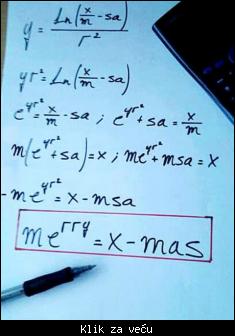 y = ln(x/m - sa)/r²
yr² = ln(x/m - sa)
e^yr² = x/m - sa ; e^yr² + sa = x/m
m(e^yr² + sa) = x ; me^yr² + msa = x
- me^yr² = x - msa
me^rry = x - mas
Klik za veću